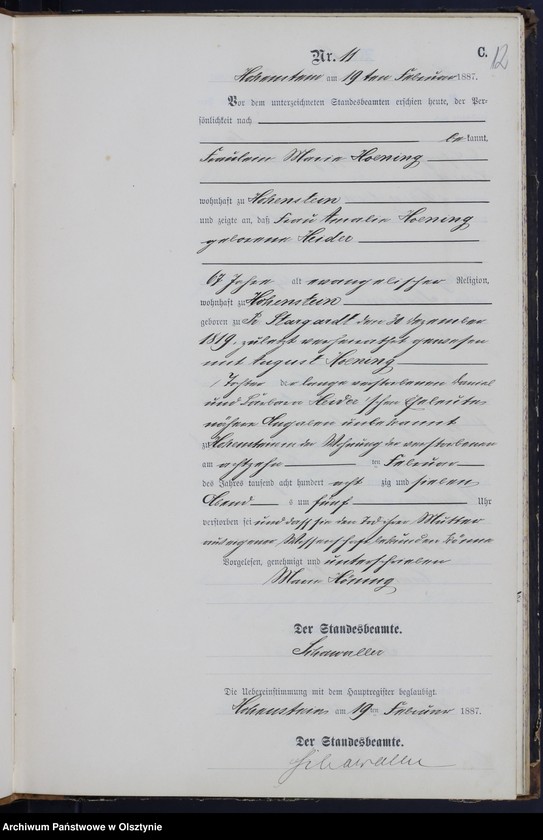 Nr. 11
C.
12
Hohenstein am 19ten Februar 1887.
Vor dem unterzeichneten Standesbeamten erschien heute, der Per-
sönlichkeit nach
be kannt,
Fräulein Maria Hoening
wohnhaft zu Hohenstein
und zeigte an, daß Frau Amalie Hoening
geborene Heider
67 Jahre alt evangelischer Religion,
wohnhaft zu Hohenstein
geboren zu Pr Stargardt den 30 Dezember
1819. zuletzt verheirathet gewesen
mit August Hoening
Tochter der lange verstorbenen Daniel
und Barbara Heider'schen Eheleute
nähere Angaben unbekannt
zu Hohenstein in der Wohnung der verstorbenen
am achtzehn ten Februar
des Jahres tausend acht hundert acht zig und sieben
Abend s um fünf Uhr
verstorben sei und dass sie den Tod ihrer Mutter
aus eigener Wissenschaft bekunden könne
Vorgelesen, genehmigt und unterschrieben
Maria Höning
Der Standesbeamte.
Schawaller
Die Uebereinstimmung mit dem Hauptregister beglaubigt.
Hohenstein am 19ten Februar 1887.
Der Standesbeamte.
Schawaller
Archiwum Państwowe w Olsztynie